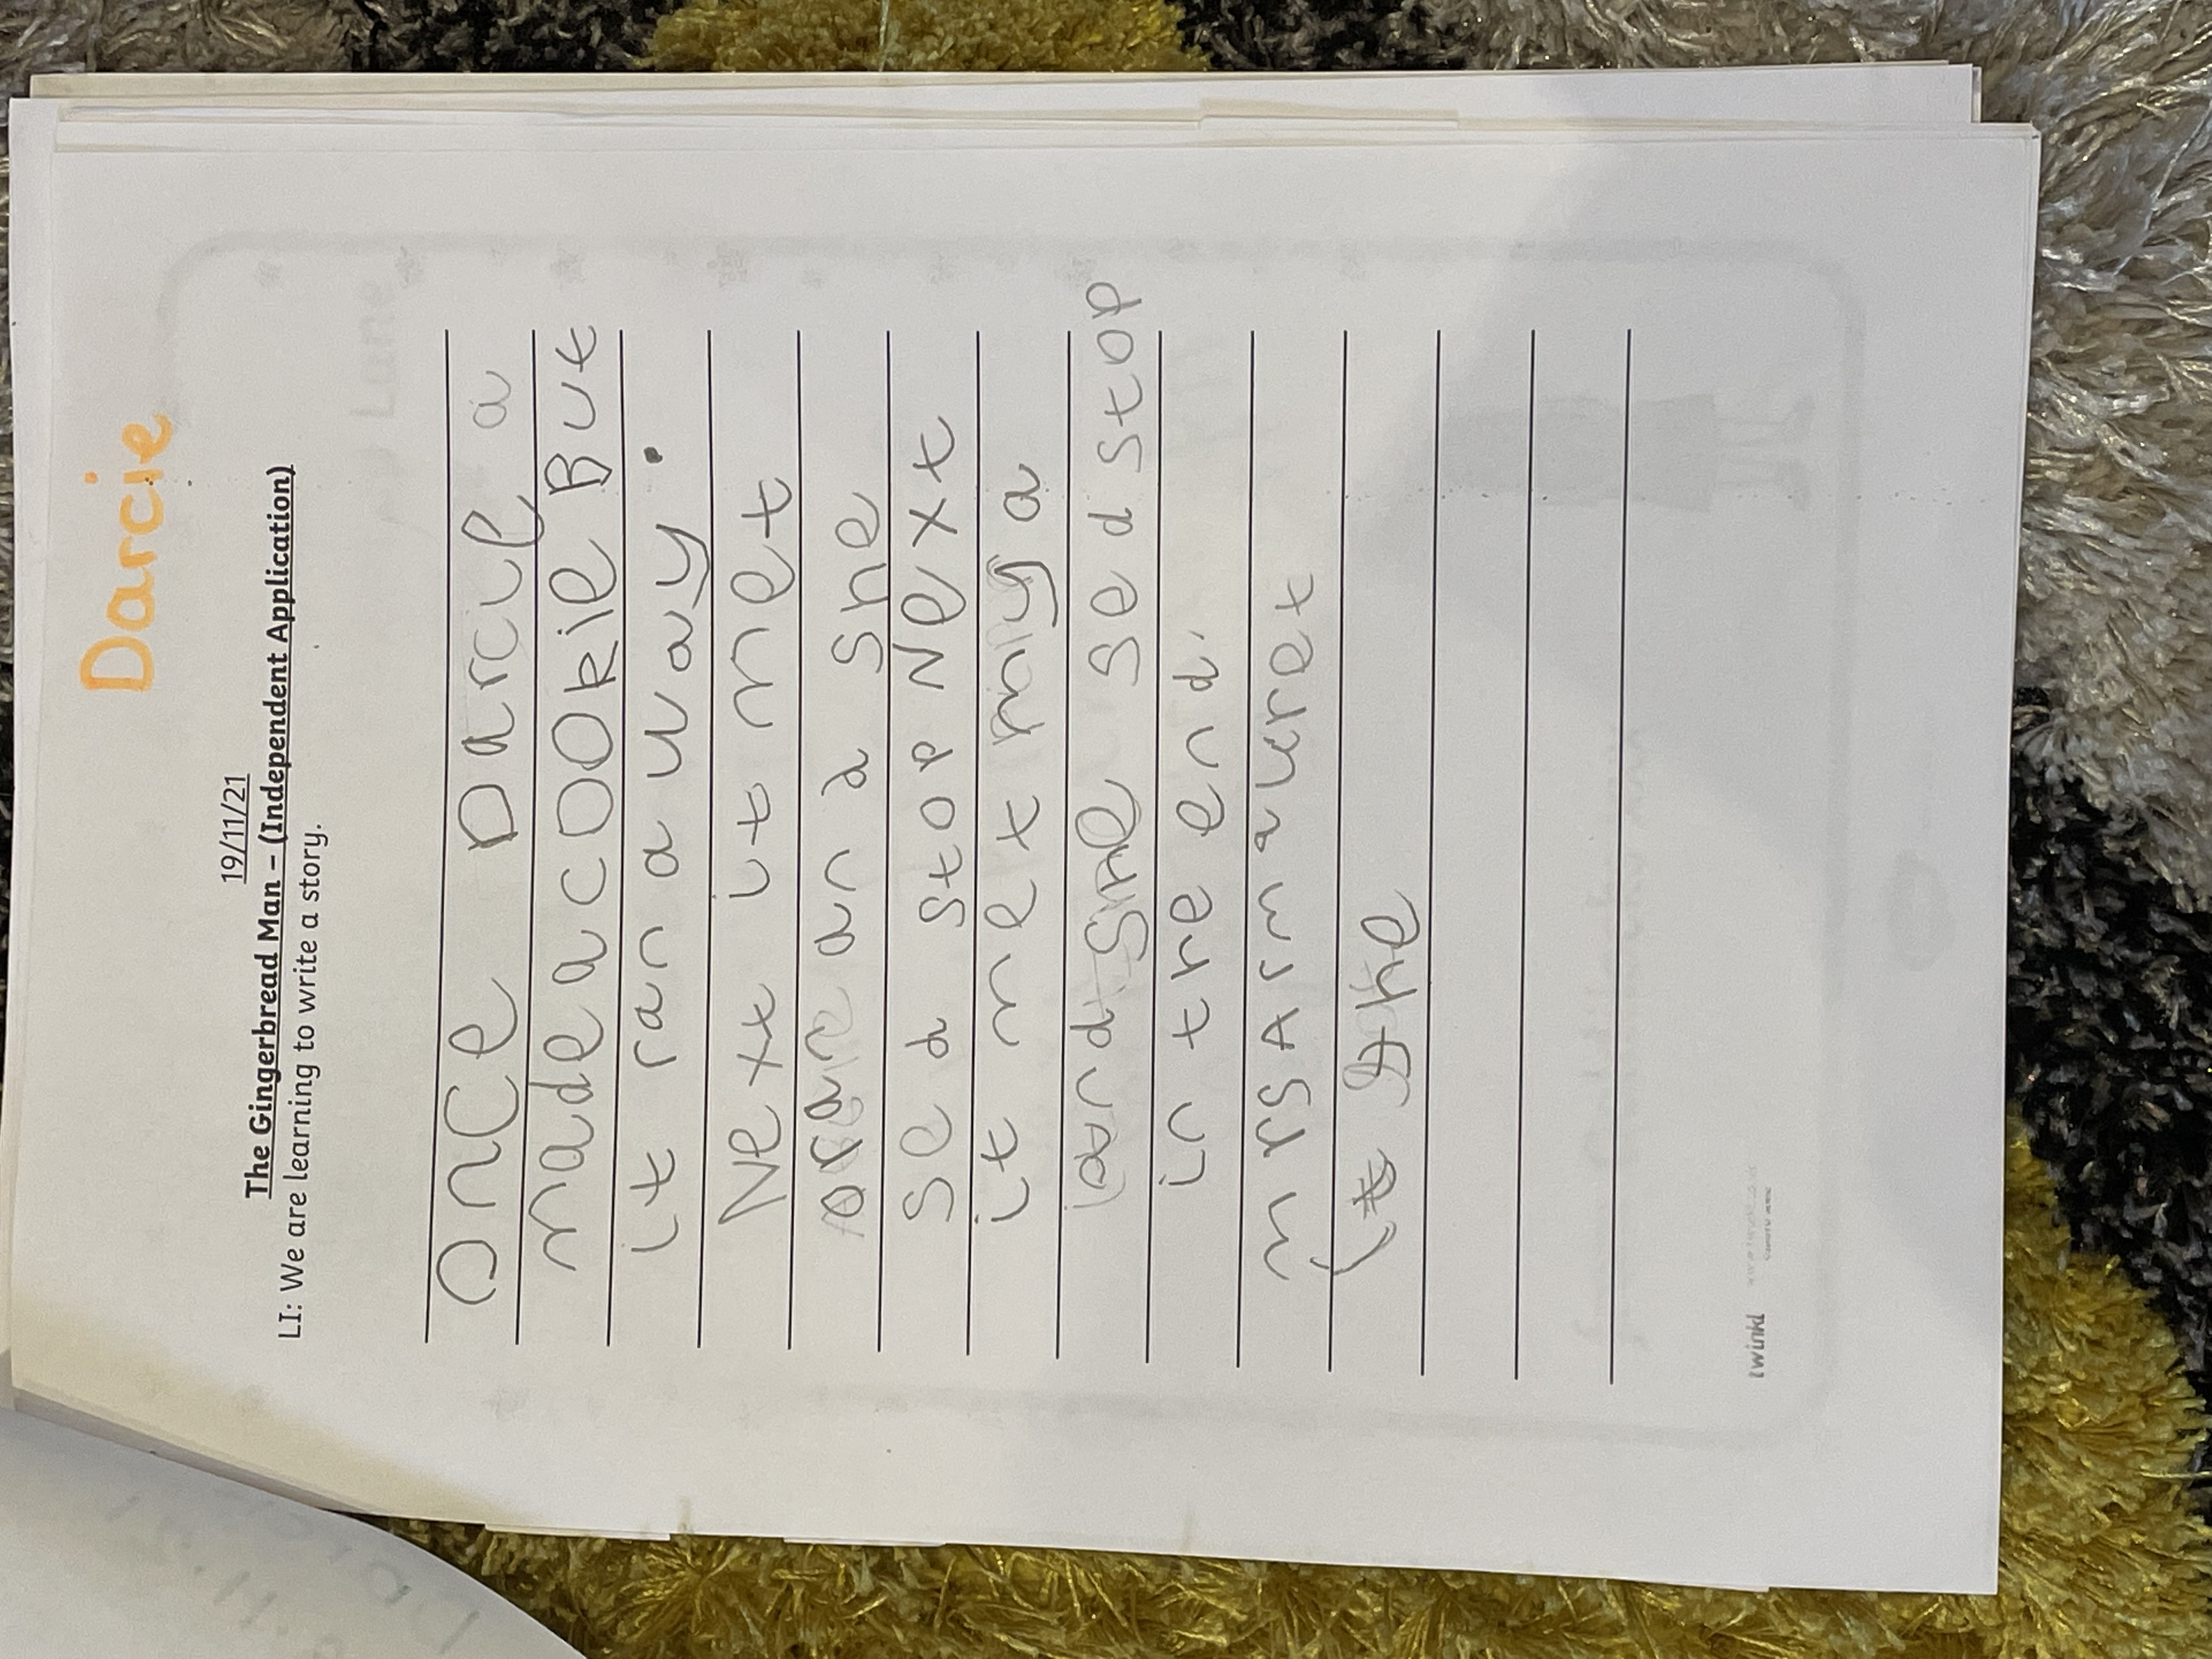 Darcie
19/11/21
The Gingerbread Man – (Independent Application)
LI: We are learning to write a story.
once Darcie a
made a cookie But
it ran a way.
Next it met
an d she
sed stop Next
it met mya
and she sed stop
in the end.
mrs Arm
it the
twinkl